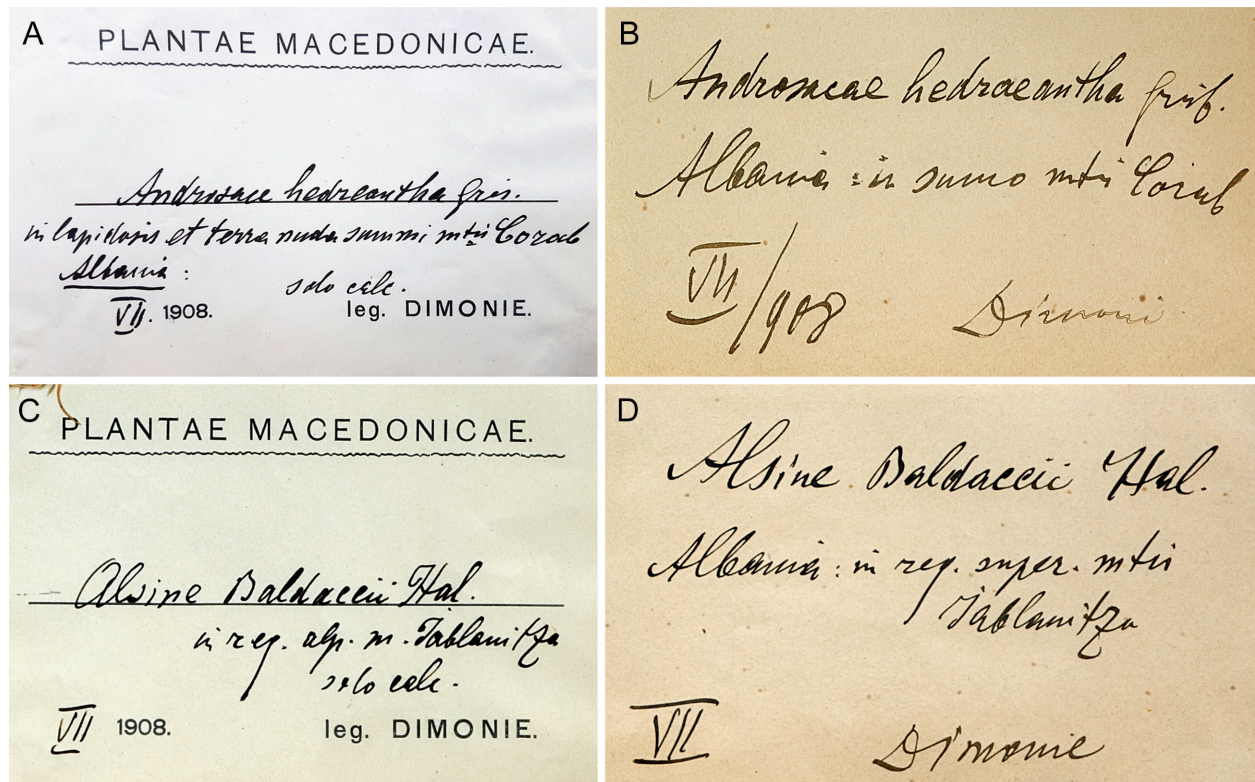 A
PLANTAE MACEDONICAE.
Androsace hedreantha Gris.
in lapidosis et terra nuda summi mtii Corab
Albania:
solo calc.
VII. 1908. leg. DIMONIE.
B
Androsaceae hedraeantha Gris.
Albania: in sumo mtii Corab
VII/908 Dimoni
C
PLANTAE MACEDONICAE.
Alsine Baldaccii Hal.
in reg. alp. m. Jablanitza
solo calc.
VII 1908. leg. DIMONIE.
D
Alsine Baldaccii Hal.
Albania: in reg. super. mtii
Jablanitza
VII Dimonie